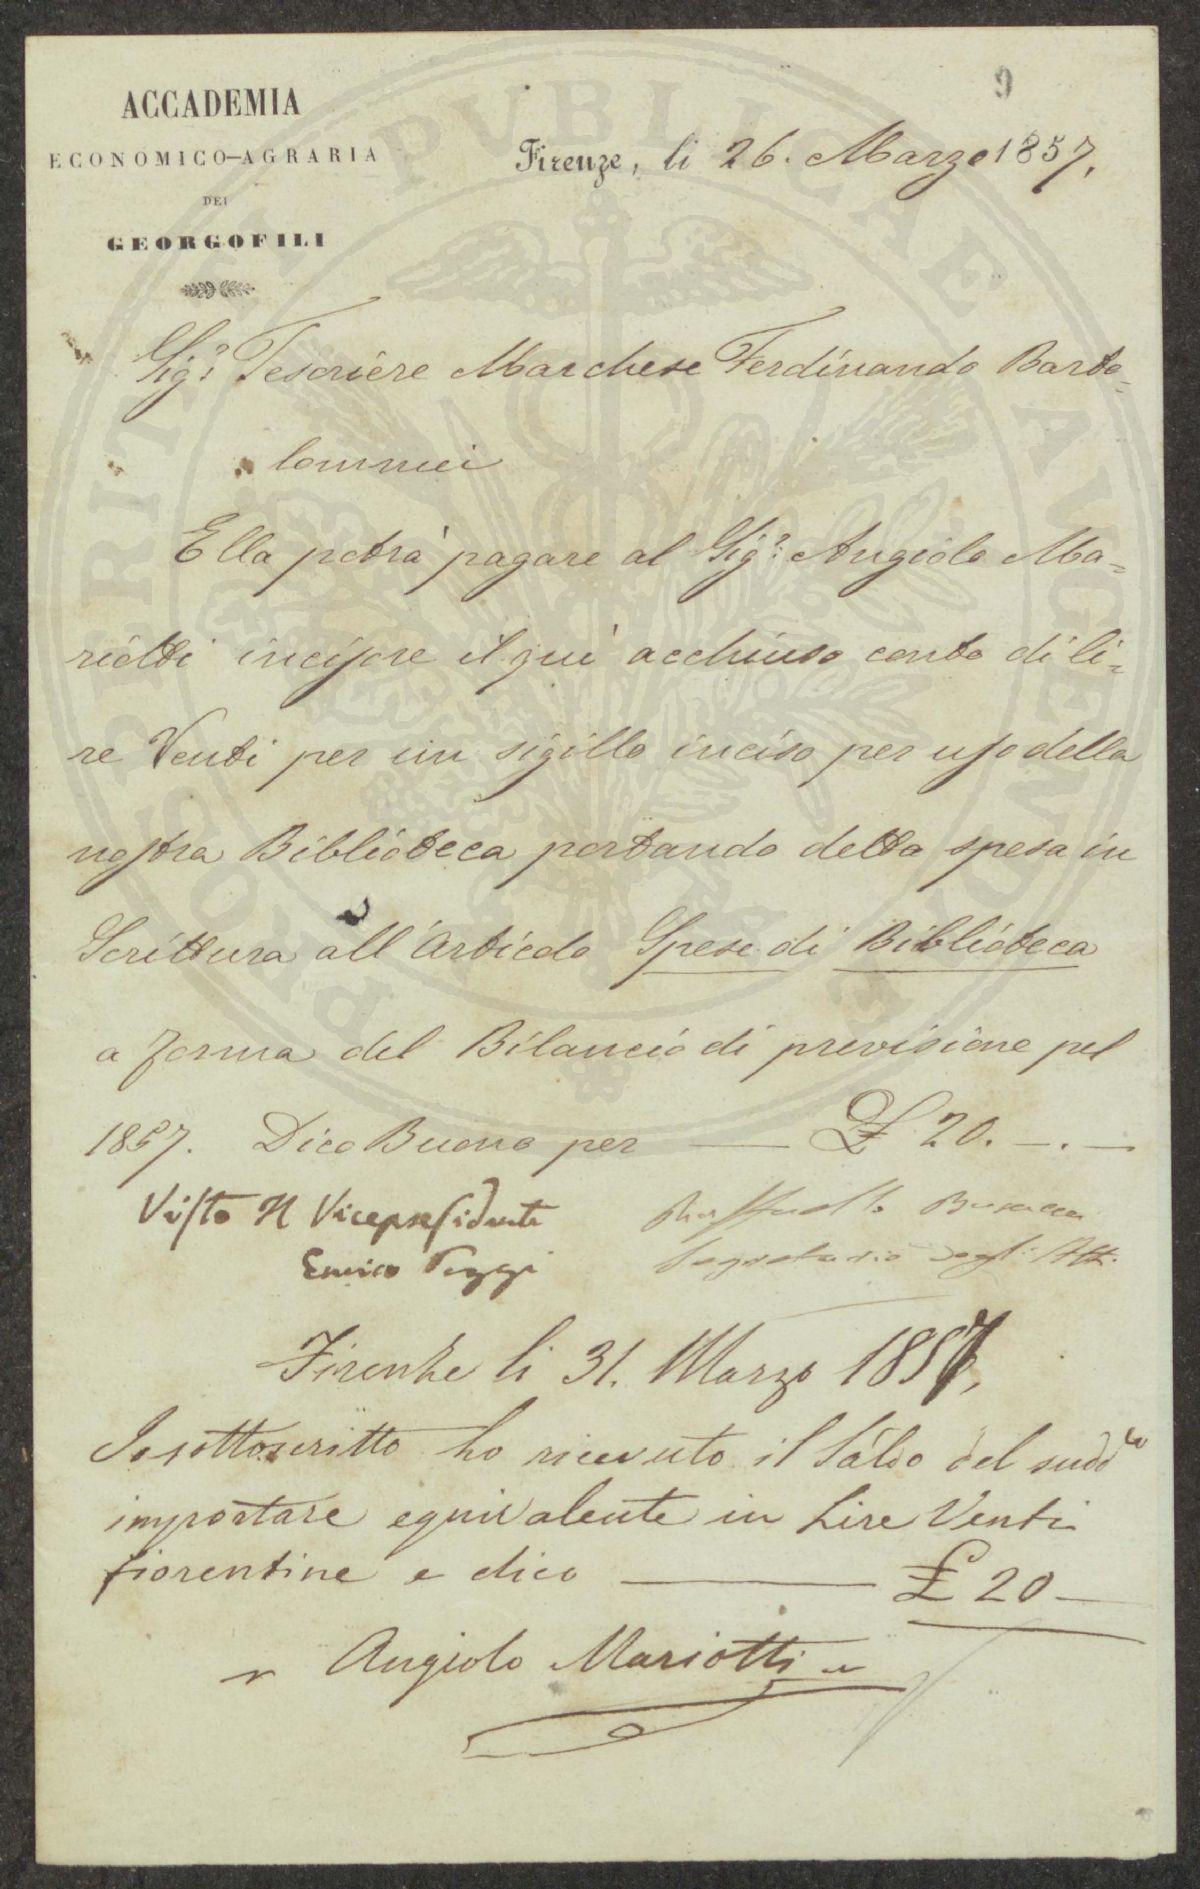 9
ACCADEMIA
ECONOMICO-AGRARIA
DEI
GEORGOFILI
Firenze, li 26. Marzo 1857.
PROSPERITATI PVBLICAE AVGENDAE
Sig.r Tesoriere Marchese Ferdinando Barto=
lommei
Ella potrà pagare al Sig.r Angiolo Ma=
riotti incisore il quì acchiuso conto di li=
re Venti per un sigillo inciso per uso della
nostra Biblioteca portando detta spesa in
Scrittura all'Articolo Spese di Biblioteca
a forma del Bilancio di previsione pel
1857. Dico Buono per — £ 20. —. —
Visto Il Vicepresidente
Enrico Poggi
Raffaello Busacca
Segretario degli Atti
Firenze li 31. Marzo 1857,
Io sottoscritto ho ricevuto il Saldo del sudd.to
importare equivalente in Lire Venti
fiorentine e dico — £ 20 —
Angiolo Mariotti